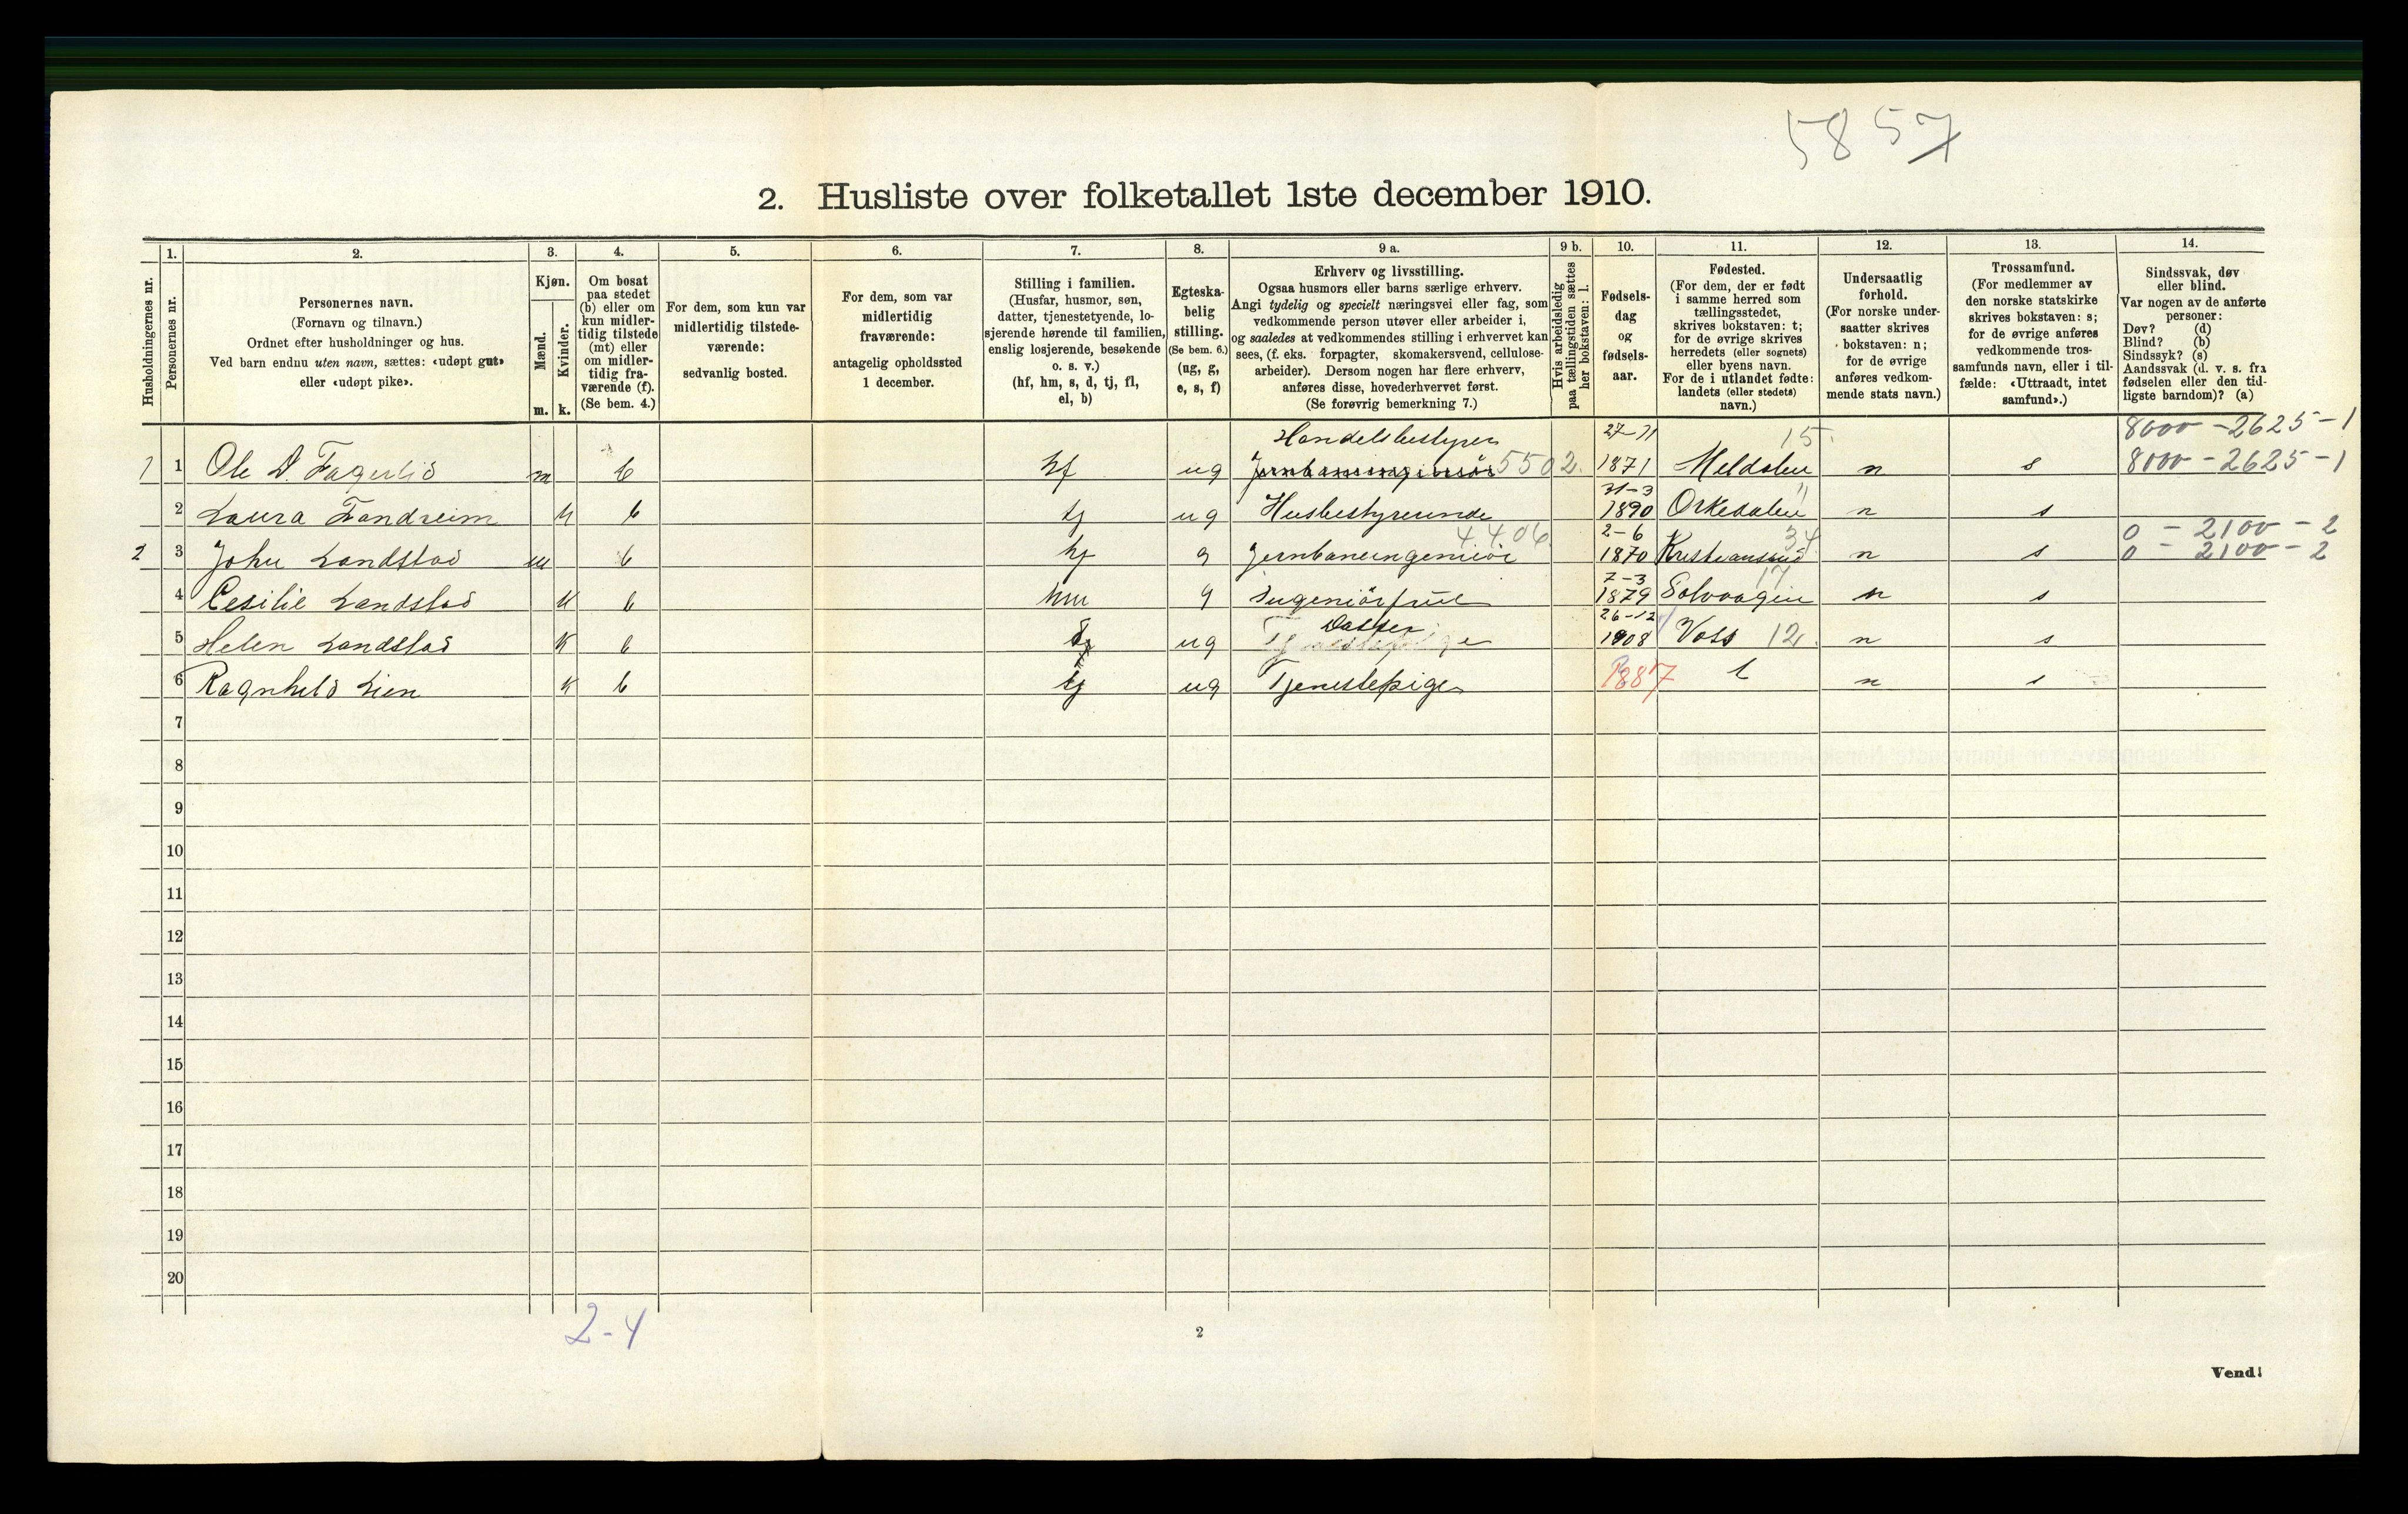 5857
2. Husliste over folketallet 1ste december 1910.
Husholdningernes nr.
1.
Personernes nr.
2.
Personernes navn.
(Fornavn og tilnavn.)
Ordnet efter husholdninger og hus.
Ved barn endnu uten navn, sættes: «udøpt gut»
eller «udøpt pike».
3.
Kjøn.
Mænd.
Kvinder.
m. k.
4.
Om bosat
paa stedet
(b) eller om
kun midler-
tidig tilstede
(mt) eller
om midler-
tidig fra-
værende (f).
(Se bem. 4.)
5.
For dem, som kun var
midlertidig tilstede-
værende:
sedvanlig bosted.
6.
For dem, som var
midlertidig
fraværende:
antagelig opholdssted
1 december.
7.
Stilling i familien.
(Husfar, husmor, søn,
datter, tjenestetyende, lo-
sjerende hørende til familien,
enslig losjerende, besøkende
o. s. v.)
(hf, hm, s, d, tj, fl,
el, b)
8.
Egteska-
belig
stilling.
(Se bem. 6.)
(ug, g,
e, s, f)
9 a.
Erhverv og livsstilling.
Ogsaa husmors eller barns særlige erhverv.
Angi tydelig og specielt næringsvei eller fag, som
vedkommende person utøver eller arbeider i,
og saaledes at vedkommendes stilling i erhvervet kan
sees, (f. eks. forpagter, skomakersvend, cellulose-
arbeider). Dersom nogen har flere erhverv,
anføres disse, hovederhvervet først.
(Se forøvrig bemerkning 7.)
9 b.
Hvis arbeidsledig
paa tællingstiden sættes
her bokstaven: l.
10.
Fødsels-
dag
og
fødsels-
aar.
11.
Fødested.
(For dem, der er født
i samme herred som
tællingsstedet,
skrives bokstaven: t;
for de øvrige skrives
herredets (eller sognets)
eller byens navn.
For de i utlandet fødte:
landets (eller stedets)
navn.)
12.
Undersaatlig
forhold.
(For norske under-
saatter skrives
bokstaven: n;
for de øvrige
anføres vedkom-
mende stats navn.)
13.
Trossamfund.
(For medlemmer av
den norske statskirke
skrives bokstaven: s;
for de øvrige anføres
vedkommende tros-
samfunds navn, eller i til-
fælde: «Uttraadt, intet
samfund».)
14.
Sindssvak, døv
eller blind.
Var nogen av de anførte
personer:
Døv? (d)
Blind? (b)
Sindssyk? (s)
Aandssvak (d. v. s. fra
fødselen eller den tid-
ligste barndom)? (a)
Handelsbestyrer 27-11 15. 8000 - 2625 - 1
1 1 Ole D. Fagerlid m b hf ug Jernbaneingeniør 5502. 1871 Meldalen n s 8000 - 2625 - 1
31-3
2 Laura Fandreim k b tj ug Husbestyrerinde 1890 Orkedalen n s
4406. 2-6 34 0 - 2100 - 2
2 3 John Landstad m b hf g Jernbaneingeniør 1870 Kristiansund n s 0 - 2100 - 2
7-3 17
4 Cesilie Landstad k b hm g Ingeniørfrue 1879 Solvaagen n s
Datter 26-12
5 Helen Landstad k b ug 1908 Voss 12. n s
6 Ragnhild Lien k b tj ug Tjenestepige 1887 t n s
7
8
9
10
11
12
13
14
15
16
17
18
19
20
2-4
2
Vend!